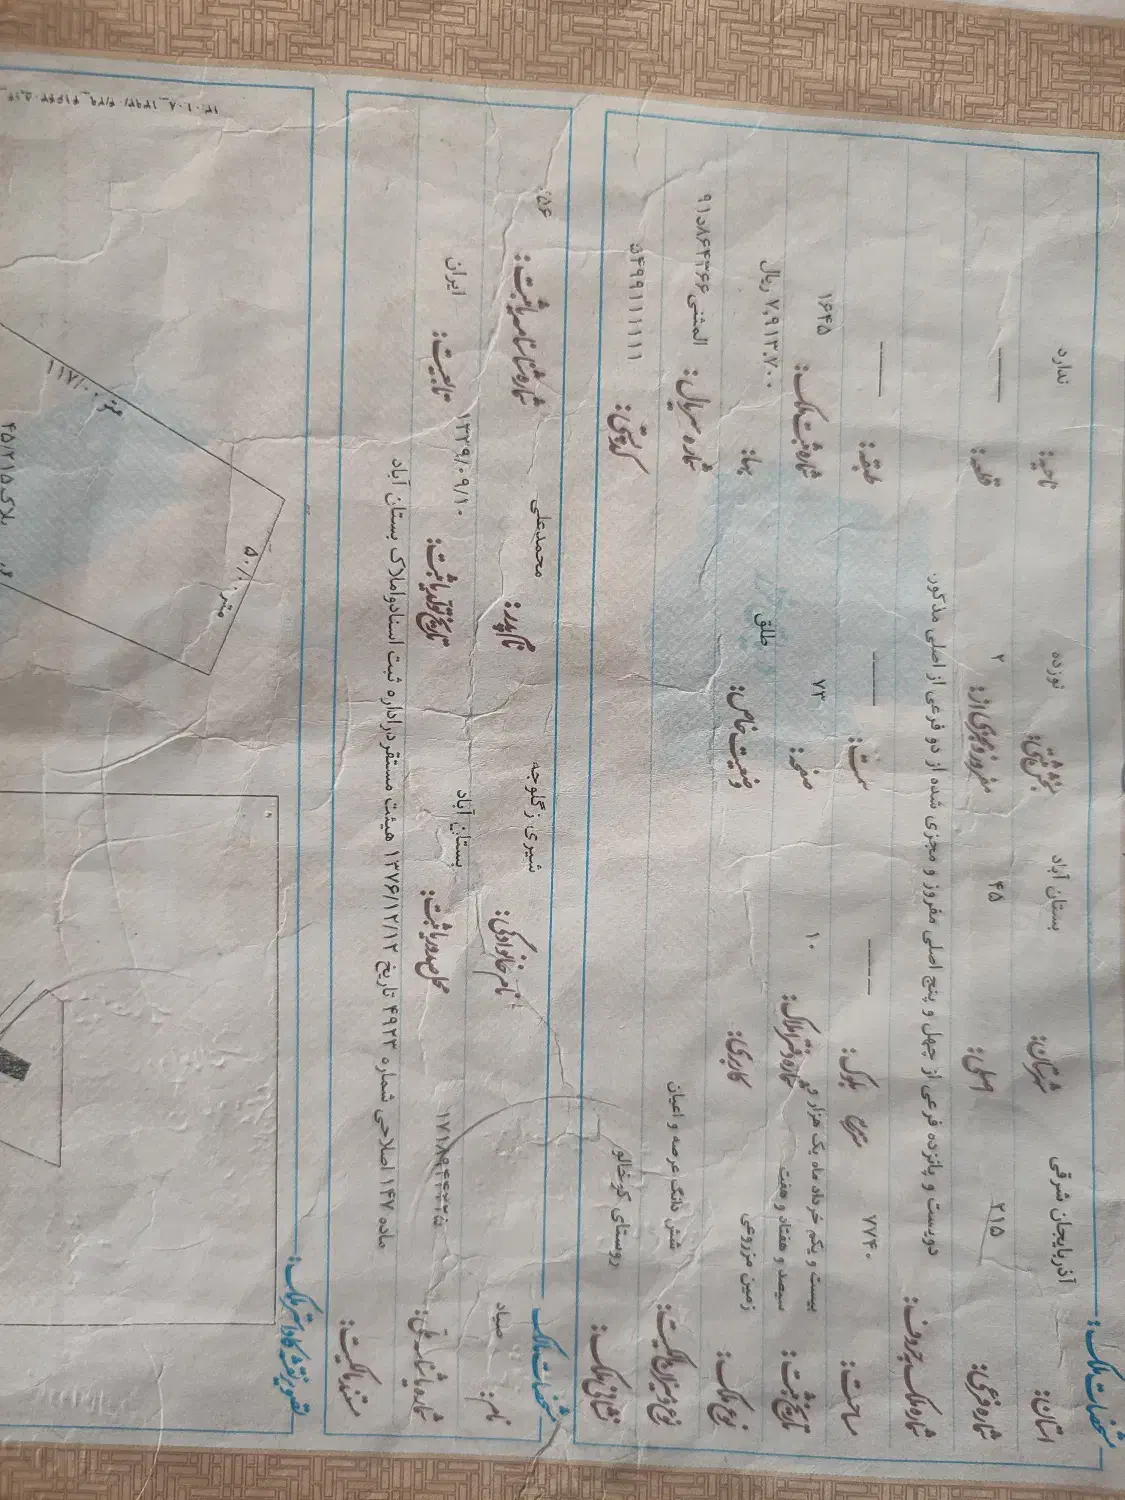 مشخصات ملک:
استان: آذربایجان شرقی شهرستان: بستان آباد بخش ثبتی: نوزده ناحیه: ندارد
شماره فرعی: ۲۱۵ اصلی: ۴۵ مفروز و مجزی از: ۲ قطعه: ———
شماره ملک بحروف: دویست و پانزده فرعی از چهل و پنج اصلی مفروز و مجزی شده از دو فرعی از اصلی مذکور.
مساحت: ۷۷۴۰ مترمربع بلوک: ——— سمت: ——— طبقه: ———
تاریخ ثبت: بیست و یکم خرداد ماه یک هزار و سیصد و هفتاد و هفت شماره دفتر املاک: ۱۰ صفحه: ۷۳ شماره ثبت ملک: ۱۶۴۵
نوع ملک: زمین مزروعی کاربری: وضعیت خاص: طلق بها: ۷,۹۱۳,۷۰۰ ریال
نوع و میزان مالکیت: شش دانگ عرصه و اعیان شماره سریال: المثنی ۹۱د۸۶۴۳۶۶
نشانی ملک: روستای کرخالو کدپستی: ۵۴۹۹۱۱۱۱۱۱
مشخصات مالک
نام: صیاد نام خانوادگی: شیری زگلوجه نام پدر: محمدعلی شماره شناسنامه یا ثبت: ۵۶۰
شماره یا شناسه ملی: ۱۷۱۸۹۴۴۲۲۵ محل صدور یا ثبت: بستان آباد تاریخ تولد یا ثبت: ۱۳۳۹/۰۹/۱۰ تابعیت: ایران
مستند مالکیت: ماده ۱۴۷ اصلاحی شماره ۴۹۲۳ تاریخ ۱۳۷۶/۱۲/۱۲ هیئت مستقر در اداره ثبت اسناد و املاک بستان آباد
تصویر نقشه کاداستر ملک:
متر ۵۰/۰۰
متر ۱۱۷/۰۰
پلاک ۴۵/۲۱۵